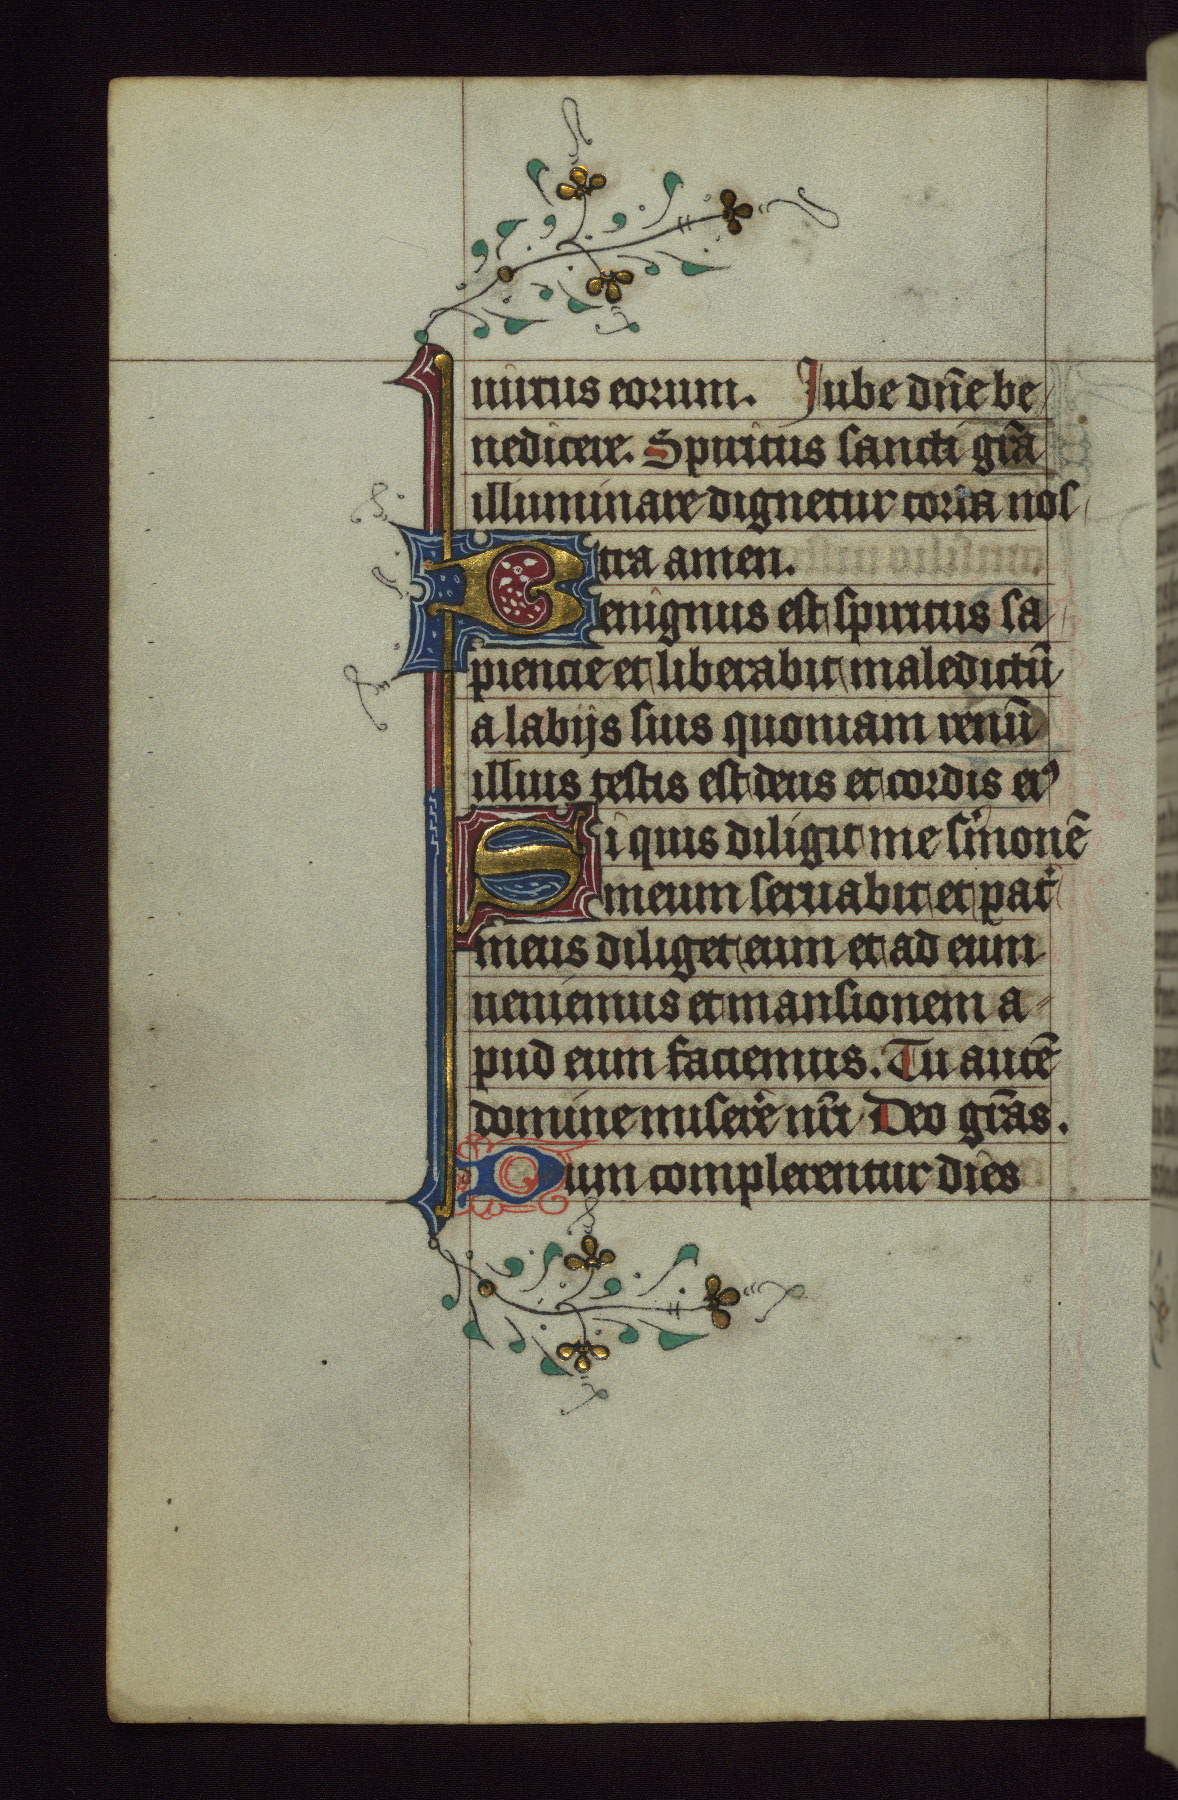 uirtus eorum. Jube dn̄e be
nedicere. Spiritus sancti gr̄a
illuminare dignetur corda nos
tra amen.
Benignus est spiritus sa
piencie et liberabit maledictū
a labijs suis quoniam renū
illius testis est deus et cordis eiꝰ
Si quis diligit me sermonē
meum seruabit et pater
meus diliget eum et ad eum
ueniemus et mansionem a
pud eum faciemus. Tu autē
domine miserere nr̄i Deo gr̄as.
Dum complerentur dies